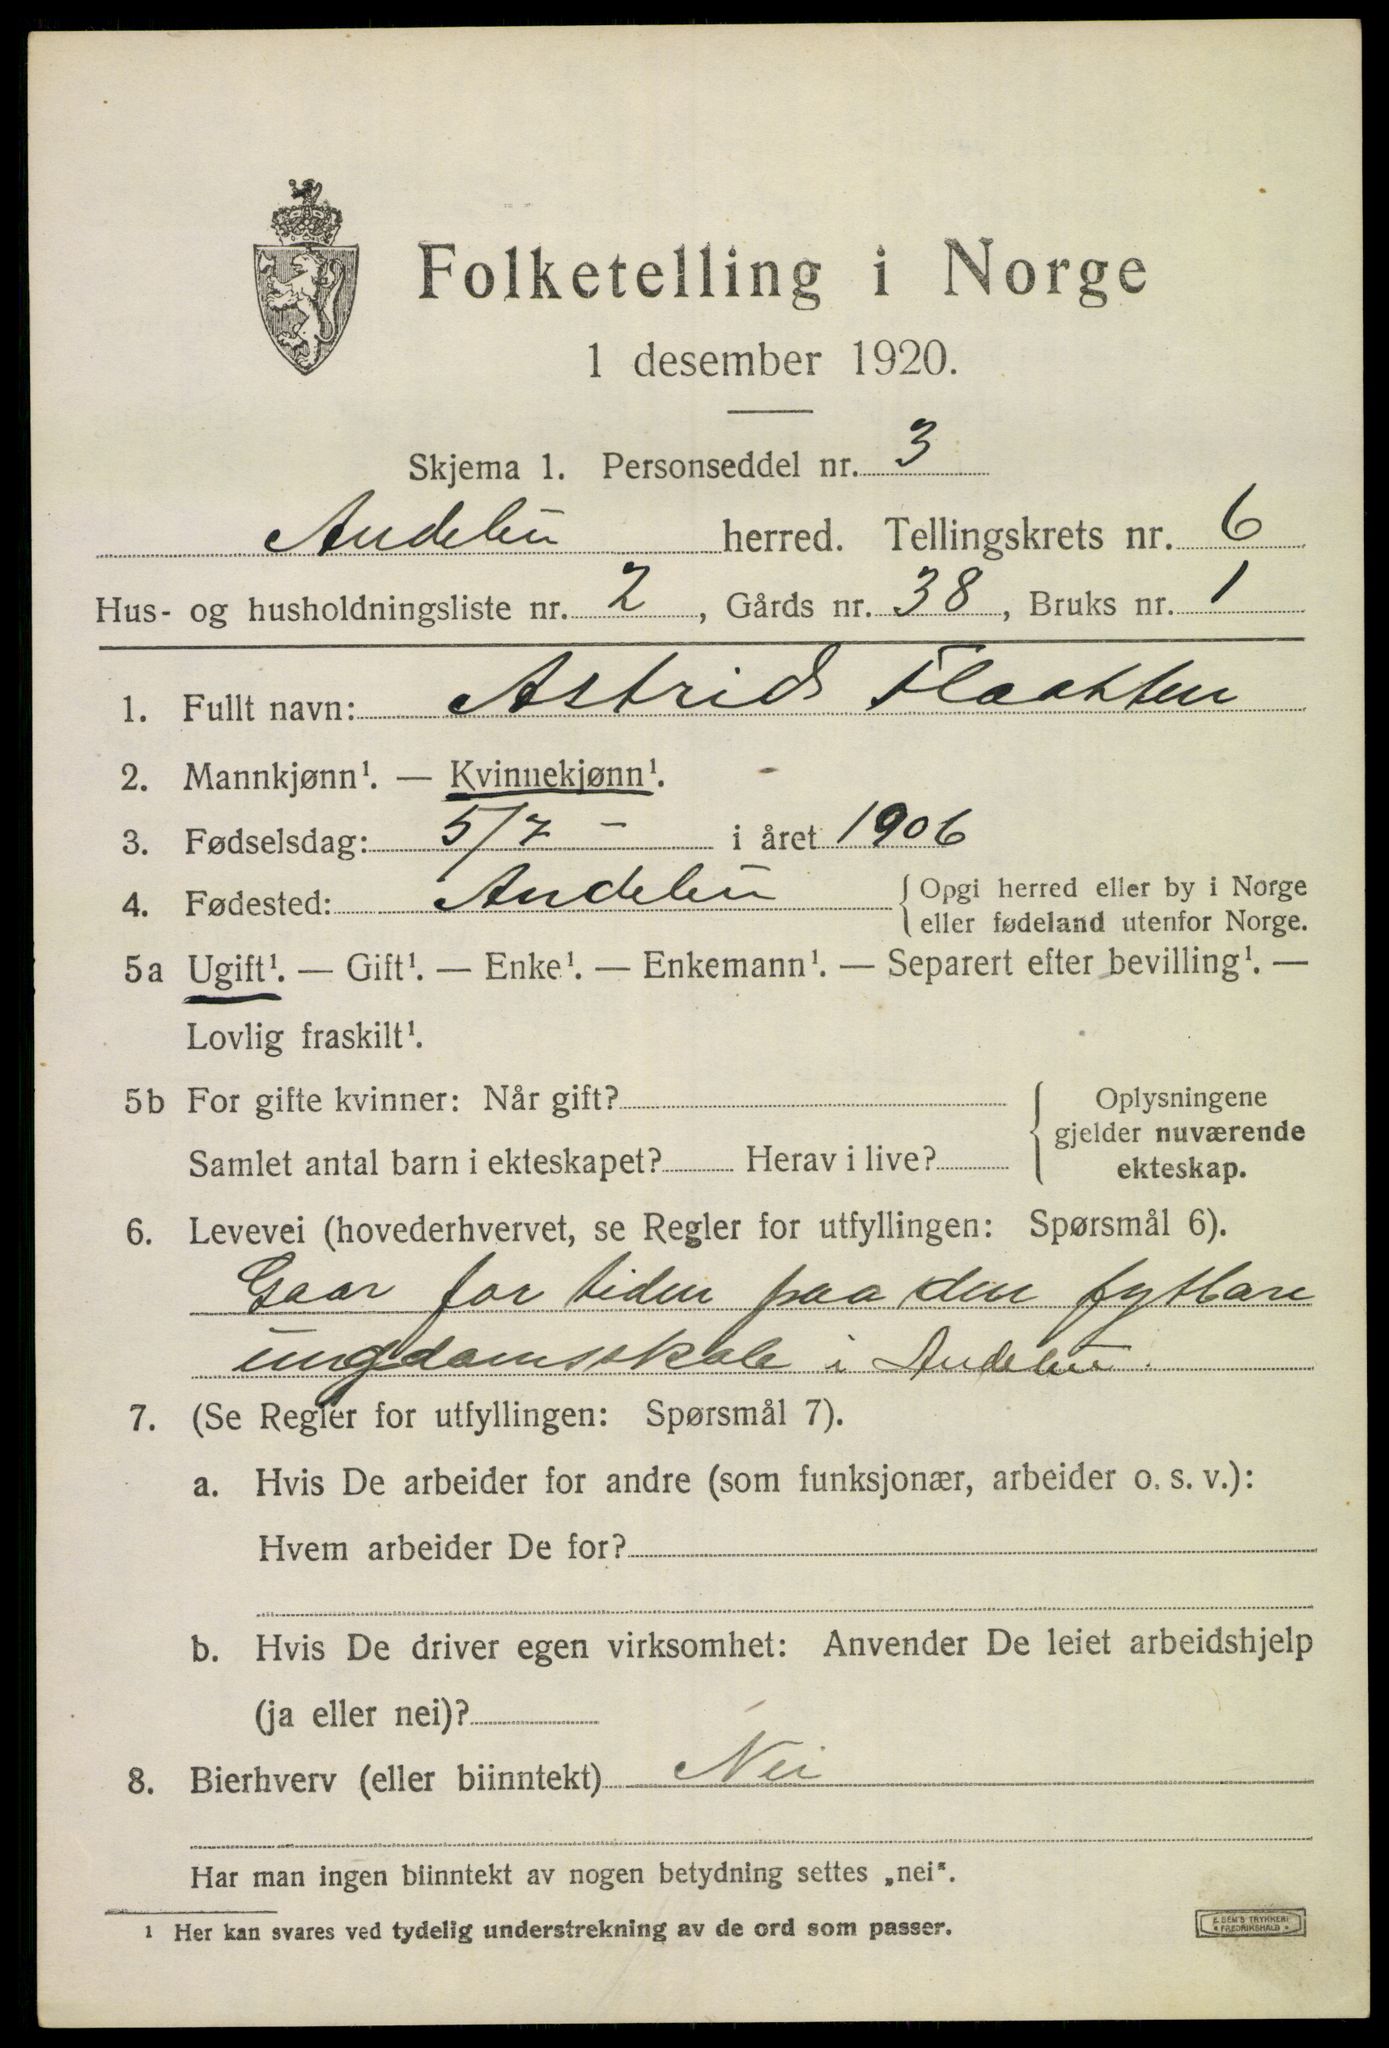 Folketelling i Norge
1 desember 1920.
Skjema 1. Personseddel nr. 3
Andebu herred. Tellingskrets nr. 6
Hus- og husholdningsliste nr. 2, Gårds nr. 38, Bruks nr. 1
1. Fullt navn: Astrid Flaatten
2. Mannkjønn¹. — Kvinnekjønn¹.
3. Fødselsdag: 5/7 – i året 1906
4. Fødested: Andebu { Opgi herred eller by i Norge
eller fødeland utenfor Norge.
5a Ugift¹. — Gift¹. — Enke¹. — Enkemann¹. — Separert efter bevilling¹. —
Lovlig fraskilt¹.
5b For gifte kvinner: Når gift? { Oplysningene
gjelder nuværende
Samlet antal barn i ekteskapet? Herav i live? ekteskap.
6. Levevei (hovederhvervet, se Regler for utfyllingen: Spørsmål 6).
Gaar for tiden paa den flytbare
ungdomsskole i Andebu.
7. (Se Regler for utfyllingen: Spørsmål 7).
a. Hvis De arbeider for andre (som funksjonær, arbeider o. s. v.):
Hvem arbeider De for?
b. Hvis De driver egen virksomhet: Anvender De leiet arbeidshjelp
(ja eller nei)?
8. Bierhverv (eller biinntekt) Nei
Har man ingen biinntekt av nogen betydning settes „nei“.
¹ Her kan svares ved tydelig understrekning av de ord som passer.
E. SEM'S TRYKKERI
FREDRIKSHALD